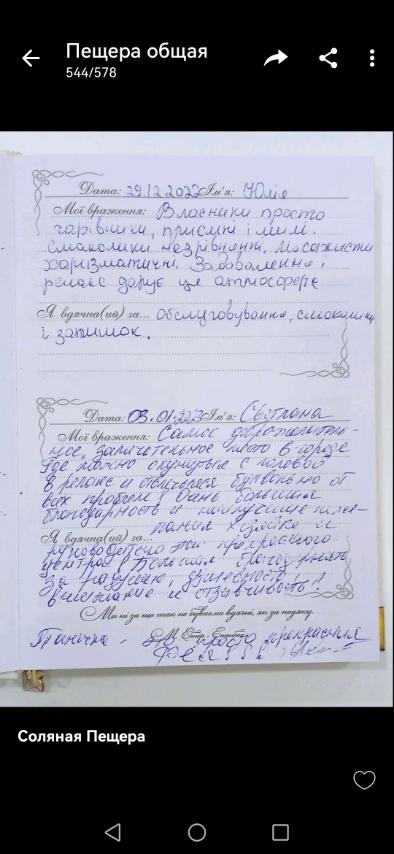 Пещера общая
544/578
Дата: 29.12.2022 Ім'я: Юлія
Мої враження: Власники просто
чарівники, приємні і милі.
Смаколики незрівненні. Масажисти
харизматичні. Задоволення і
релакс дарує ця атмосфера
Я вдячна(ий) за... обслуговування, смаколики
і затишок.
Дата: 03.01.2023 Ім'я: Светлана
Мої враження: Самое доброжелатель-
ное, замечательное место в городе
Где можно окунуться с головой
в релакс и отвлечься буквально от
всех проблем
благодарность и наилучшие поже-
лания хозяйке и
Я вдячна(ий) за...
руководителю прекрасного
центра
за
внимание и отзывчивость
Ми ні за що так не буваємо вдячні, як за подяку.
Танечка - просто прекрасная
Соляная Пещера